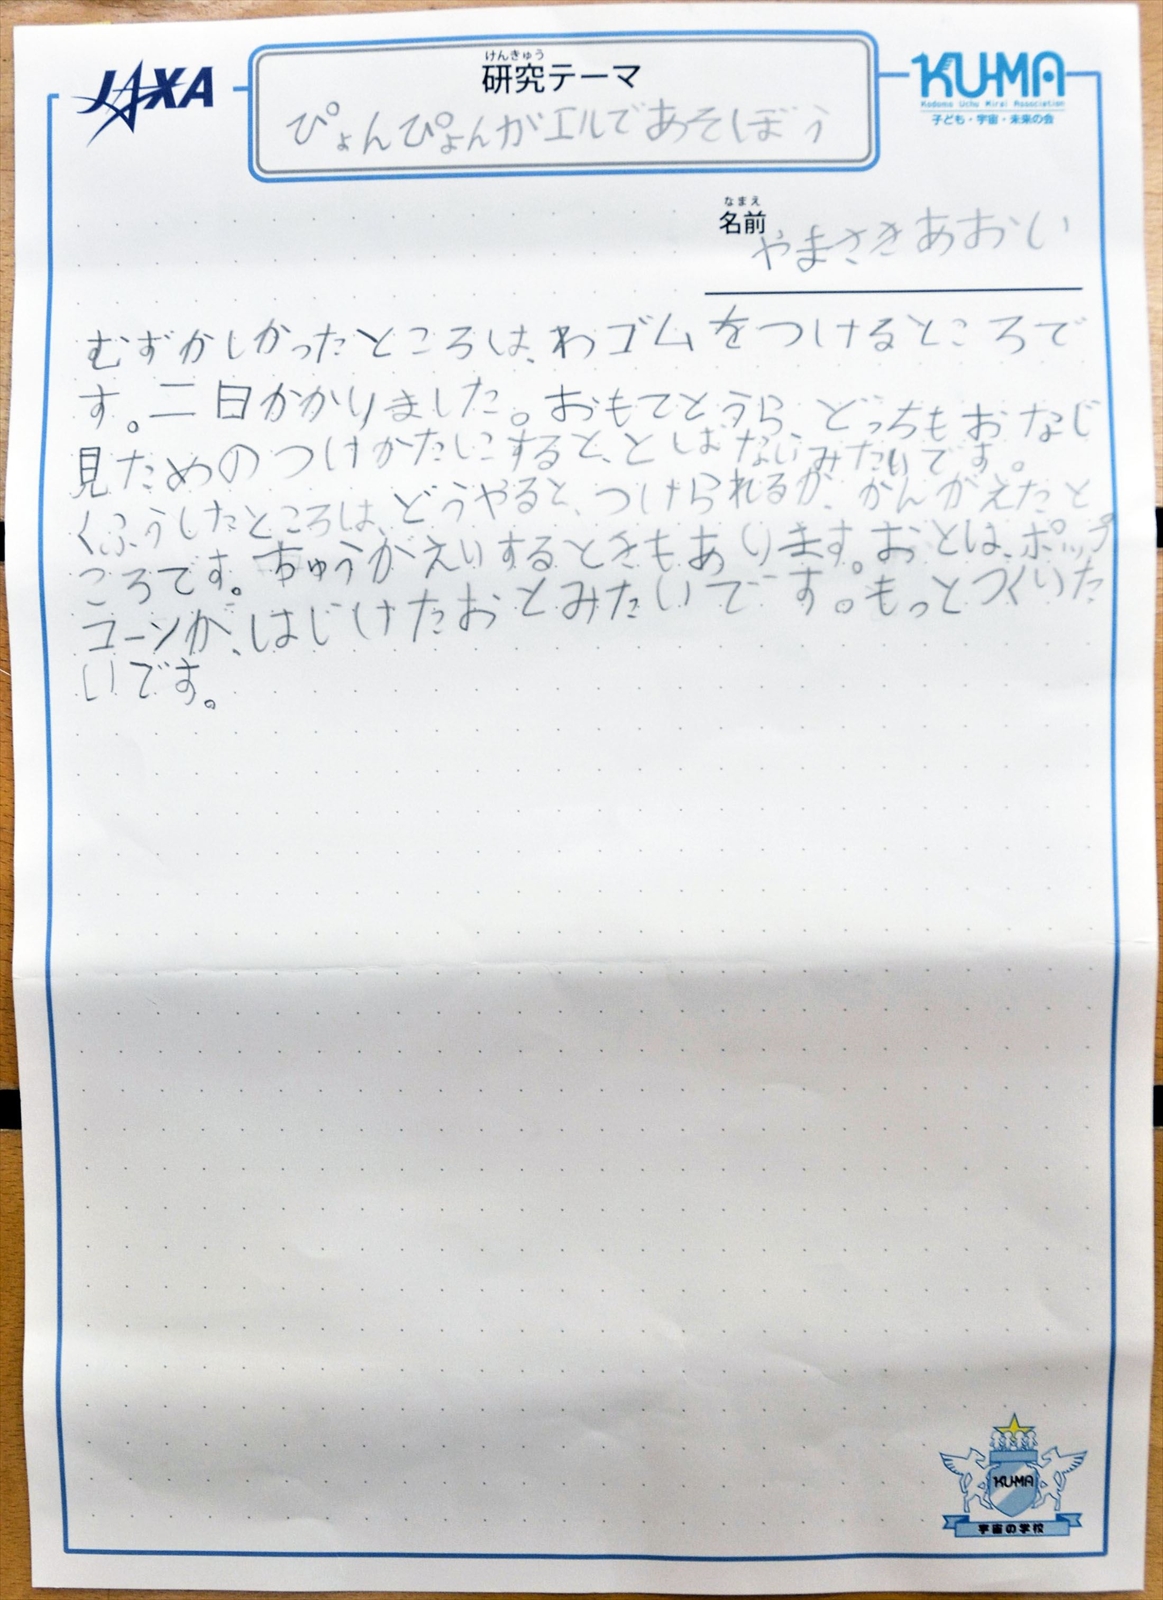 JAXA
けんきゅう
研究テーマ
ぴょんぴょんガエルであそぼう
KU-MA
Kodomo Uchu Mirai Association
子ども・宇宙・未来の会
なまえ
名前
やまさきあおい
むずかしかったところは、わゴムをつけるところで
す。二日かかりました。おもてとうら、どっちもおなじ
見ためのつけかたにすると、とばないみたいです。
くふうしたところは、どうやると、つけられるか、かんがえたと
ころです。ちゅうがえりするときもあります。おとは、ポップ
コーンが、はじけたおとみたいです。もっとつくりた
いです。
KU-MA
宇宙の学校